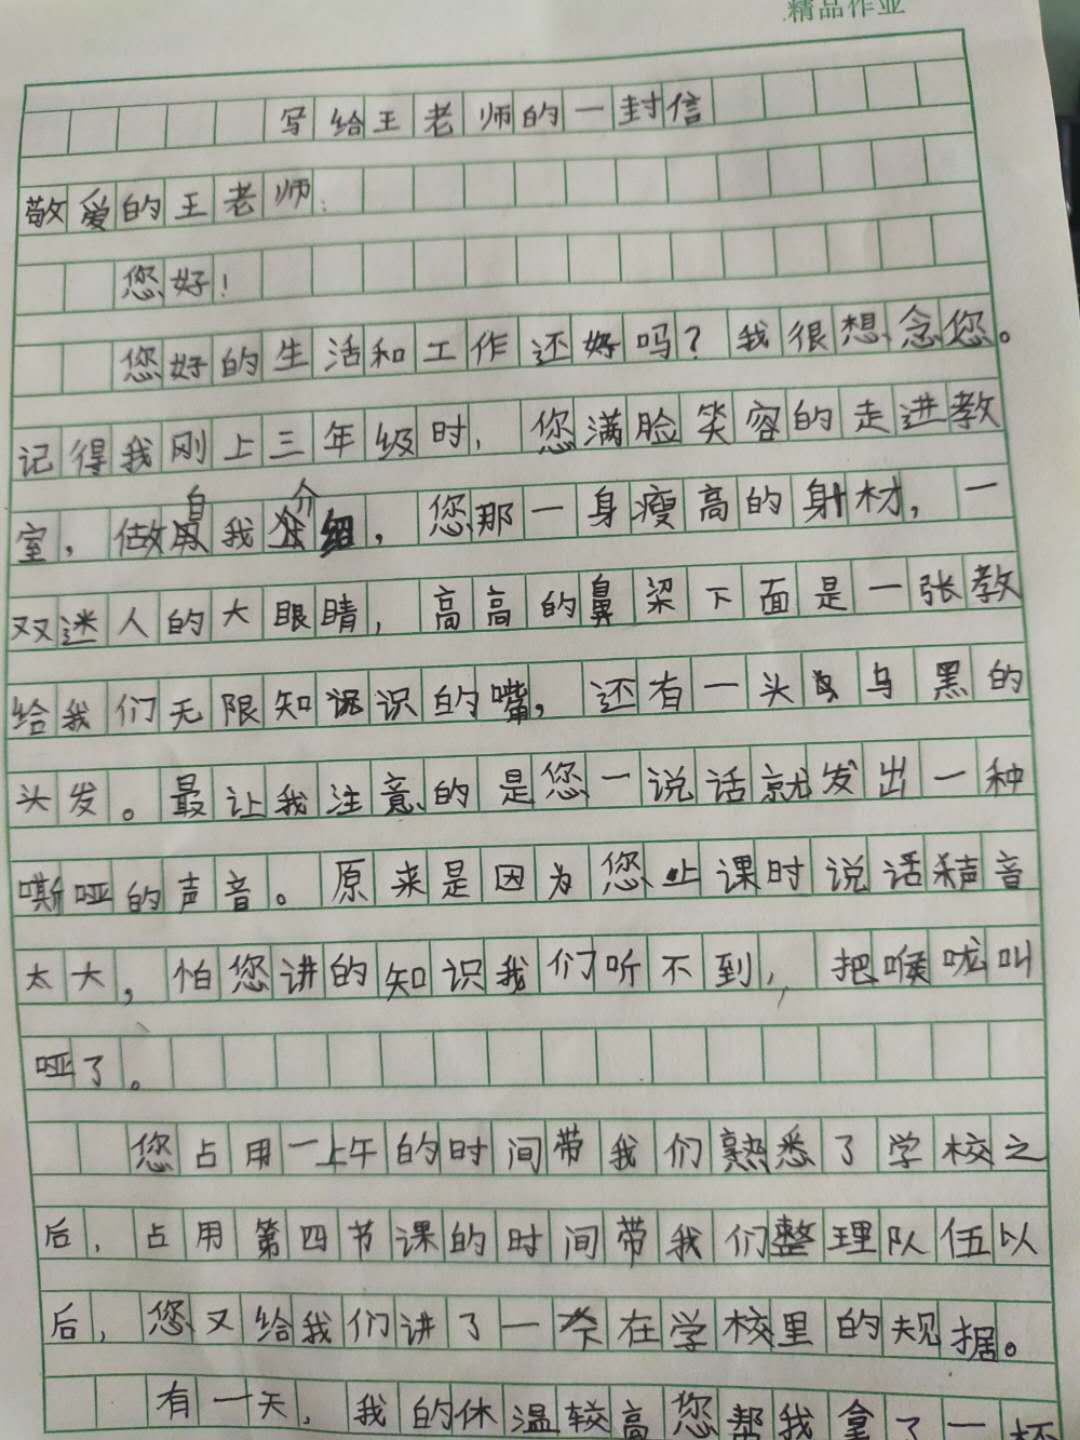 精品作业
写给王老师的一封信
敬爱的王老师:
您好!
您好的生活和工作还好吗?我很想念您。
记得我刚上三年级时,您满脸笑容的走进教
室,做自我介绍,您那一身瘦高的身材,一
双迷人的大眼睛,高高的鼻梁下面是一张教
给我们无限知识的嘴,还有一头乌黑的
头发。最让我注意的是您一说话就发出一种
嘶哑的声音。原来是因为您上课时说话声音
太大,怕您讲的知识我们听不到,把喉咙叫
哑了。
您占用一上午的时间带我们熟悉了学校之
后,占用第四节课的时间带我们整理队伍以
后,您又给我们讲了一在学校里的规据。
有一天,我的体温较高您帮我拿了一杯